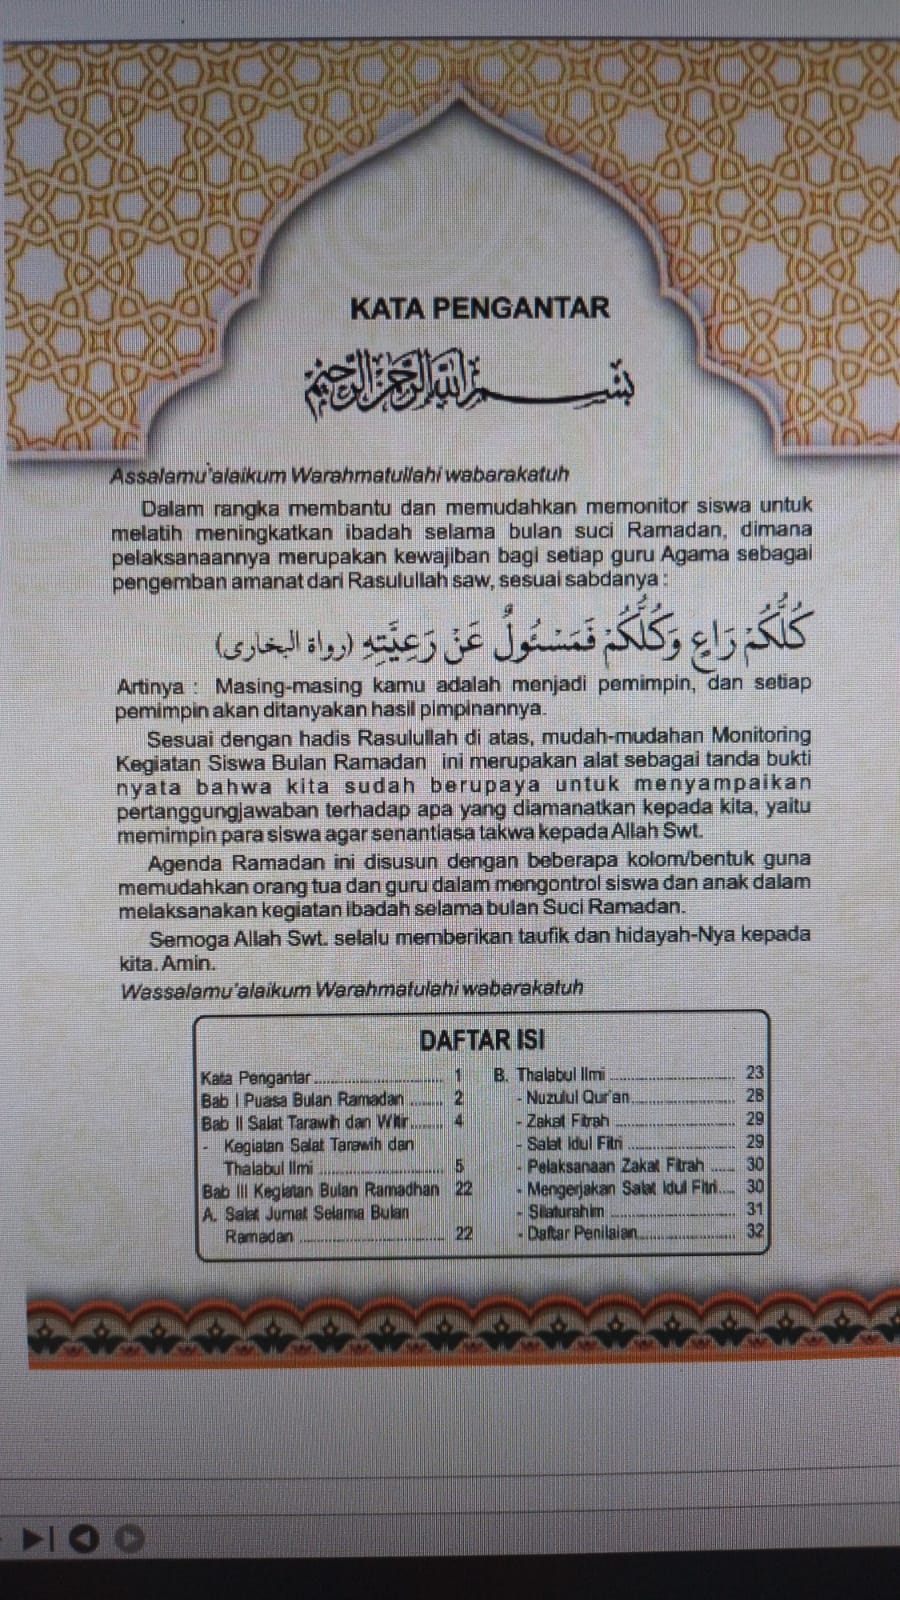 KATA PENGANTAR
بسم الله الرحمن الرحيم
Assalamu'alaikum Warahmatullahi wabarakatuh
Dalam rangka membantu dan memudahkan memonitor siswa untuk
melatih meningkatkan ibadah selama bulan suci Ramadan, dimana
pelaksanaannya merupakan kewajiban bagi setiap guru Agama sebagai
pengemban amanat dari Rasulullah saw, sesuai sabdanya :
كُلُّكُمْ رَاعٍ وَكُلُّكُمْ فَمَسْئُولٌ عَنْ رَعِيَّتِهِ (رواة البخارى)
Artinya : Masing-masing kamu adalah menjadi pemimpin, dan setiap
pemimpin akan ditanyakan hasil pimpinannya.
Sesuai dengan hadis Rasulullah di atas, mudah-mudahan Monitoring
Kegiatan Siswa Bulan Ramadan ini merupakan alat sebagai tanda bukti
nyata bahwa kita sudah berupaya untuk menyampaikan
pertanggungjawaban terhadap apa yang diamanatkan kepada kita, yaitu
memimpin para siswa agar senantiasa takwa kepada Allah Swt.
Agenda Ramadan ini disusun dengan beberapa kolom/bentuk guna
memudahkan orang tua dan guru dalam mengontrol siswa dan anak dalam
melaksanakan kegiatan ibadah selama bulan Suci Ramadan.
Semoga Allah Swt. selalu memberikan taufik dan hidayah-Nya kepada
kita. Amin.
Wassalamu'alaikum Warahmatulahi wabarakatuh
DAFTAR ISI
Kata Pengantar ........................ 1
Bab I Puasa Bulan Ramadan ........ 2
Bab II Salat Tarawih dan Witir........ 4
- Kegiatan Salat Tarawih dan
Thalabul Ilmi ........................ 5
Bab III Kegiatan Bulan Ramadhan 22
A. Salat Jumat Selama Bulan
Ramadan ............................ 22
B. Thalabul Ilmi ........................ 23
- Nuzulul Qur'an.................... 28
- Zakat Fitrah ........................ 29
- Salat Idul Fitri .................... 29
- Pelaksanaan Zakat Fitrah ...... 30
- Mengerjakan Salat Idul Fitri.... 30
- Silaturahim ........................ 31
- Daftar Penilaian.................... 32